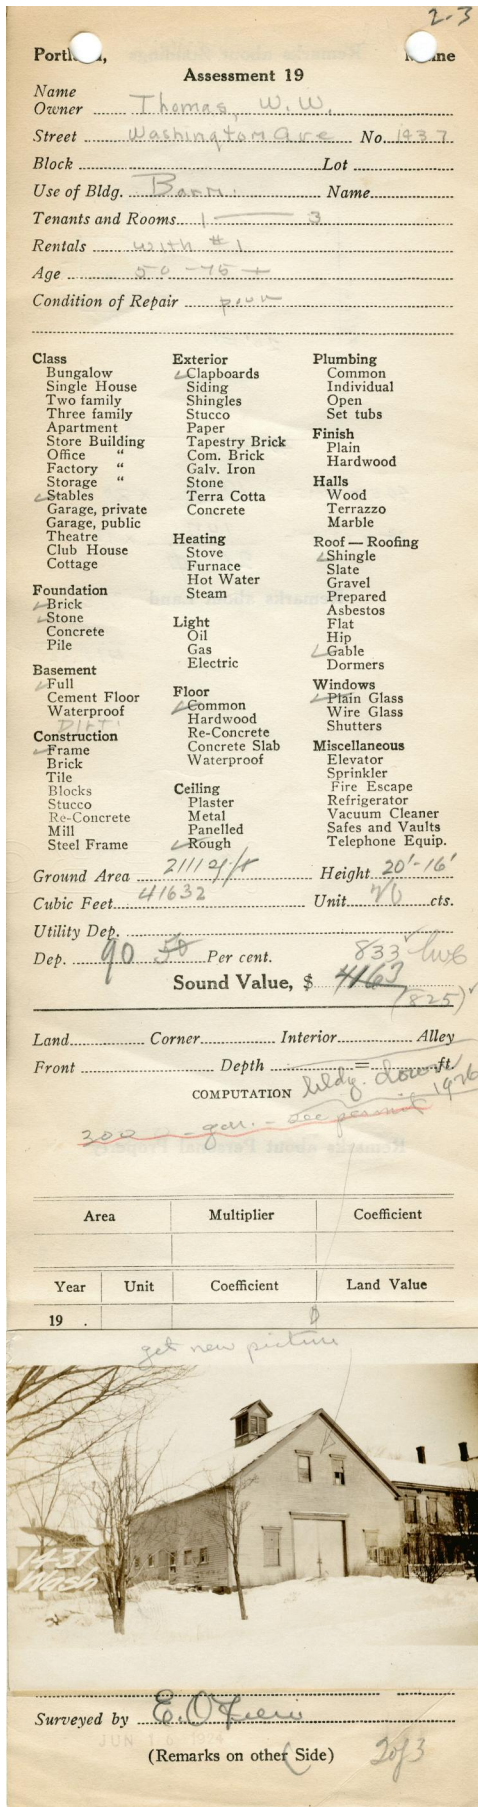 2-3
Portland, Maine
Assessment 19
Name
Owner Thomas, W. W.
Street Washington Ave No. 1437
Block Lot
Use of Bldg. Barn. Name
Tenants and Rooms 1 — 3
Rentals with #1
Age 50-75+
Condition of Repair poor
Class
Bungalow
Single House
Two family
Three family
Apartment
Store Building
Office "
Factory "
Storage "
✓Stables
Garage, private
Garage, public
Theatre
Club House
Cottage
Foundation
✓Brick
✓Stone
Concrete
Pile
Basement
✓Full
Cement Floor
Waterproof
Dirt
Construction
✓Frame
Brick
Tile
Blocks
Stucco
Re-Concrete
Mill
Steel Frame
Exterior
✓Clapboards
Siding
Shingles
Stucco
Paper
Tapestry Brick
Com. Brick
Galv. Iron
Stone
Terra Cotta
Concrete
Heating
Stove
Furnace
Hot Water
Steam
Light
Oil
Gas
Electric
Floor
✓Common
Hardwood
Re-Concrete
Concrete Slab
Waterproof
Ceiling
Plaster
Metal
Panelled
✓Rough
Plumbing
Common
Individual
Open
Set tubs
Finish
Plain
Hardwood
Halls
Wood
Terrazzo
Marble
Roof — Roofing
✓Shingle
Slate
Gravel
Prepared
Asbestos
Flat
Hip
✓Gable
Dormers
Windows
✓Plain Glass
Wire Glass
Shutters
Miscellaneous
Elevator
Sprinkler
Fire Escape
Refrigerator
Vacuum Cleaner
Safes and Vaults
Telephone Equip.
Ground Area 2111 Height 20'-16'
Cubic Feet 41632 Unit cts.
Utility Dep.
Dep. 90 50 Per cent. 833 ✓
Sound Value, $ 4163
(825) ✓
Land Corner Interior Alley
Front Depth = ft.
COMPUTATION bldg. down 1926
300 - gar. - see permit
Area Multiplier Coefficient
Year Unit Coefficient Land Value
19 .
get new picture
1437
Wash
Surveyed by
JUN 1924
(Remarks on other Side) 2 of 3